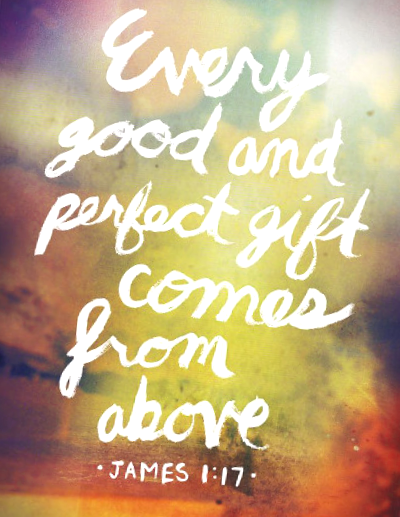 Every
good and
perfect gift
comes
from
above
• JAMES 1:17 •